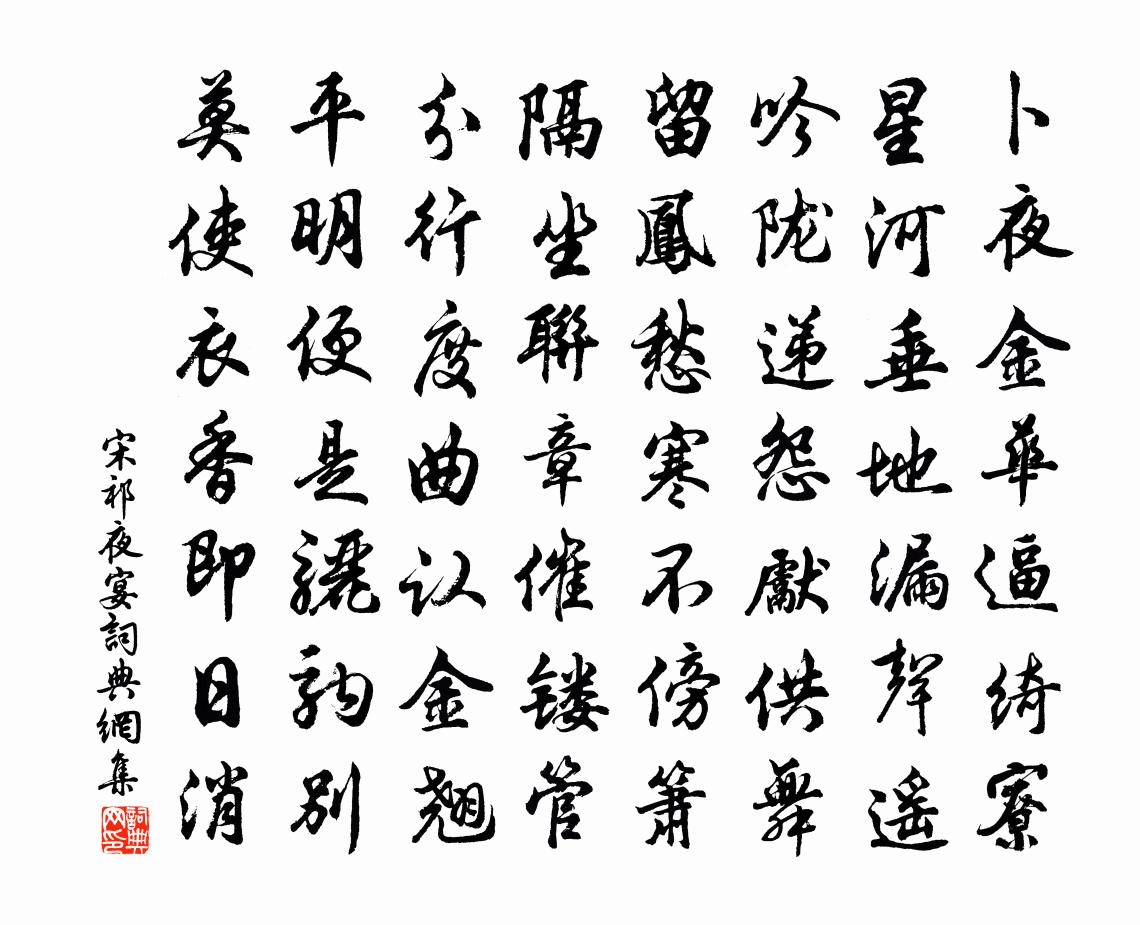 卜夜金華逼綺寮
星河垂地漏聲遥
吟陇递怨獻供舞
留鳳愁寒不傍箫
隔坐聯章催镂管
分行度曲认金翘
平明便是驪駒别
莫使衣香即日消
宋祁夜宴詞典網集
詞典网印